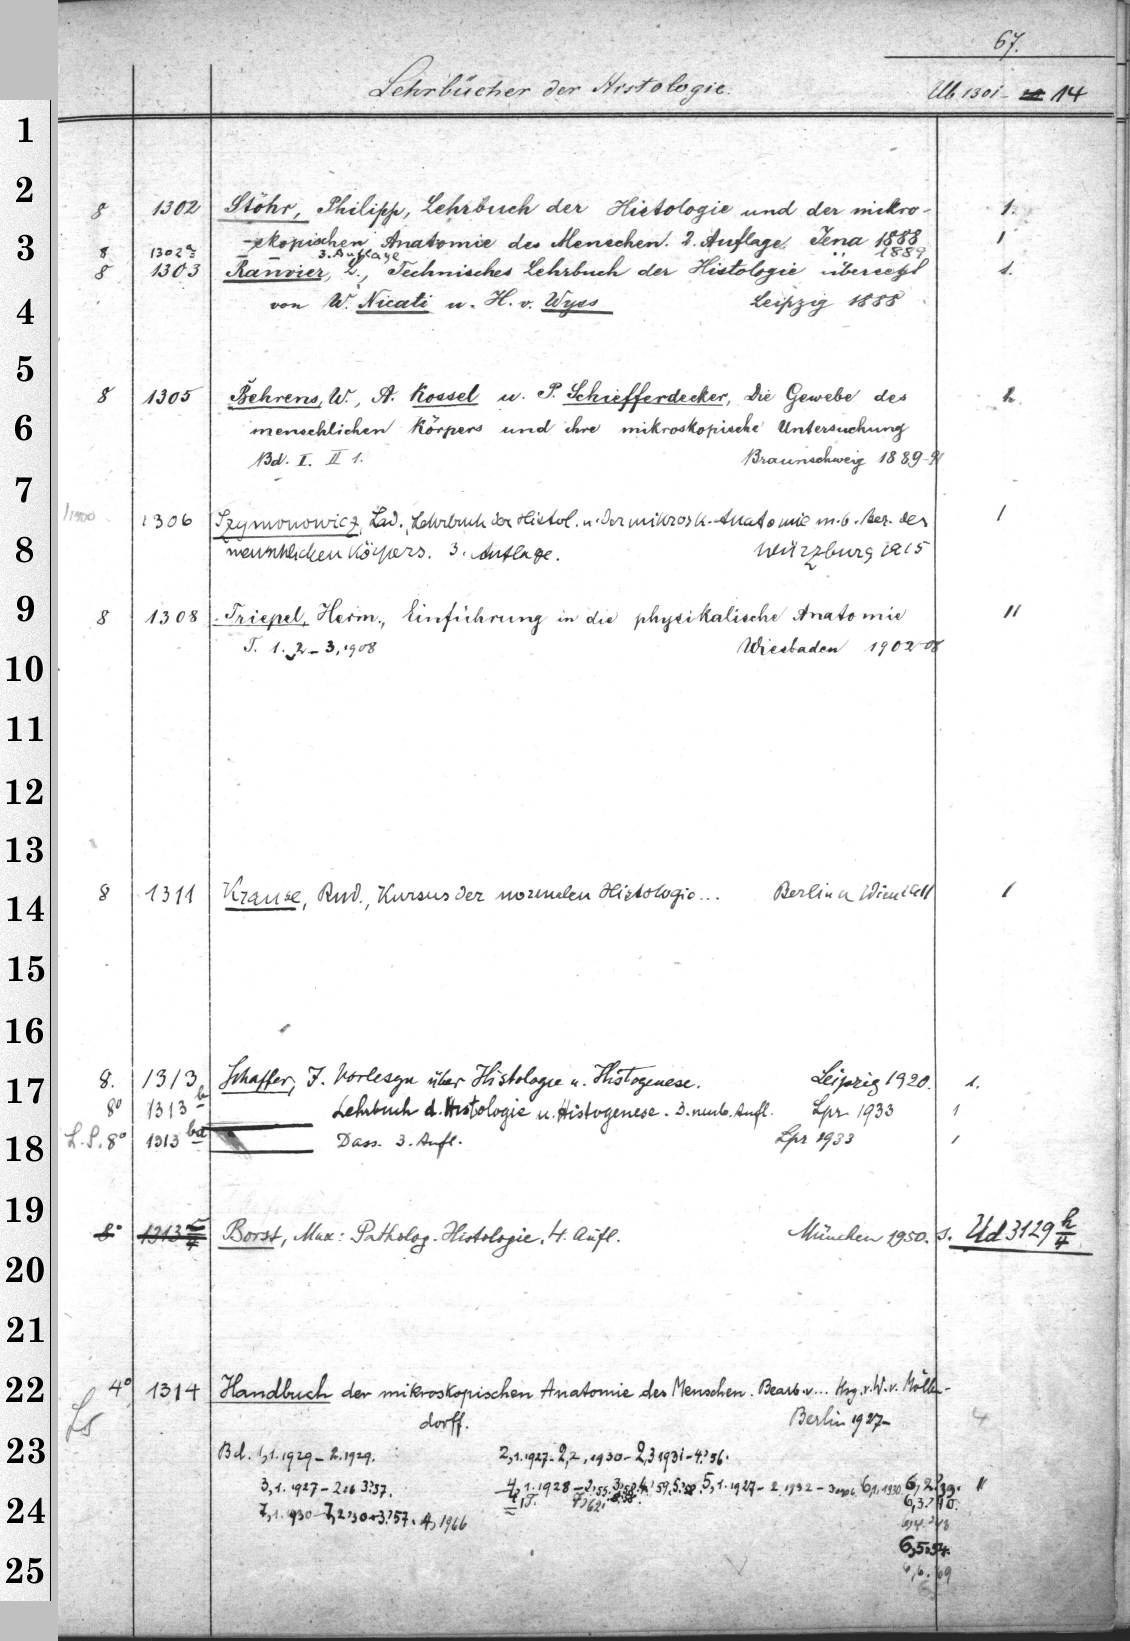 67.
Lehrbücher der Histologie. Ub 1301- 14
1
2
8 1302 Stöhr, Philipp, Lehrbuch der Histologie und der mikro- 1.
3
-skopischen Anatomie des Menschen. 2. Auflage. Jena 1888 1
8 1302a 3. Auflage " 1889
8 1303 Ranvier, L., Technisches Lehrbuch der Histologie übersetzt 1.
4
von W. Nicati u. H. v. Wyss Leipzig 1888
5
8 1305 Behrens, W., A. Kossel u. P. Schiefferdecker, Die Gewebe des 2
6
menschlichen Körpers und ihre mikroskopische Untersuchung
Bd. I. II 1. Braunschweig 1889-91
7
1306 Szymonowicz, Lad., Lehrbuch der Histol. u. der mikrosk. Anatomie m. b. Ber. des 1
8
menschlichen Körpers. 3. Auflage. Würzburg 1915
9
8 1308 Triepel, Herm., Einführung in die physikalische Anatomie 11
10
T. 1. 2-3, 1908 Wiesbaden 1902-08
11
12
13
14
8 1311 Krause, Rud., Kursus der normalen Histologie... Berlin u Wien 1911 1
15
16
17
8. 1313 Schaffer, J. Vorlesgn über Histologie u. Histogenese. Leipzig 1920. 1.
8° 1313 b Lehrbuch d. Histologie u. Histogenese. 3. neub. Aufl. Lpr 1933 1
18
L.S. 8° 1313 ba Dass. 3. Aufl. Lpr 1933 1
19
8° 1313 c/4 Borst, Max: Patholog. Histologie. 4. Aufl. München 1950. s. Ud 3129 h/4
20
21
22
4° 1314 Handbuch der mikroskopischen Anatomie des Menschen. Bearb. v... Hrg. v. W. v. Möllen-
Ls dorff. Berlin 1927- 4
23
Bd. 1,1.1929-2.1929. 2,1.1927-2,2,1930-2,3 1931-4.56.
3,1.1927-2
4,1.1928 5,1.1927-2.1932 11
24
6,3.
4,1966
6,4.
25
6,5.54.
6,6.69